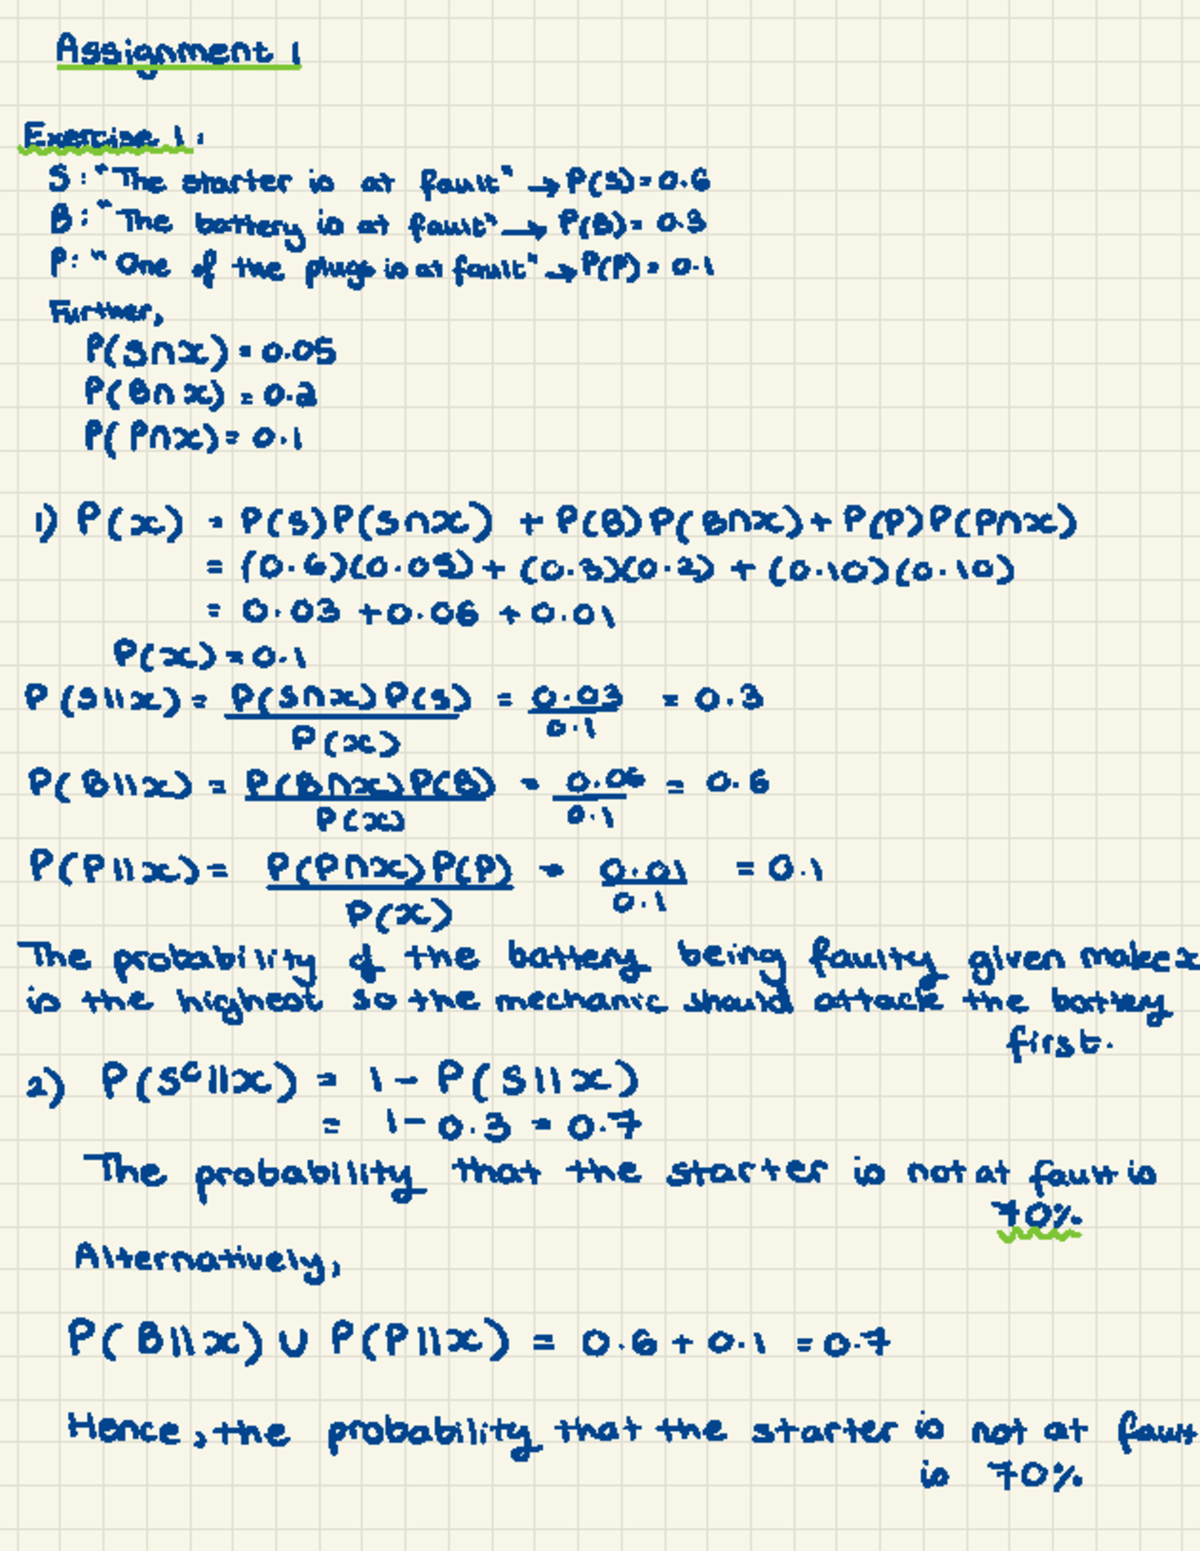 Assignment 1
Exercise 1:
S: "The starter is at fault" → P(S) = 0.6
B: "The battery is at fault" → P(B) = 0.3
P: "One of the plugs is at fault" → P(P) = 0.1
Further,
P(S∩x) = 0.05
P(B∩x) = 0.2
P(P∩x) = 0.1
1) P(x) = P(S)P(S∩x) + P(B)P(B∩x) + P(P)P(P∩x)
= (0.6)(0.05) + (0.3)(0.2) + (0.10)(0.10)
= 0.03 + 0.06 + 0.01
P(x) = 0.1
P(S||x) = P(S∩x)P(S) / P(x) = 0.03 / 0.1 = 0.3
P(B||x) = P(B∩x)P(B) / P(x) = 0.06 / 0.1 = 0.6
P(P||x) = P(P∩x)P(P) / P(x) = 0.01 / 0.1 = 0.1
The probability of the battery being faulty given make x
is the highest so the mechanic should attack the battery
first.
2) P(Sᶜ||x) = 1 - P(S||x)
= 1 - 0.3 = 0.7
The probability that the starter is not at fault is
70%
Alternatively,
P(B||x) ∪ P(P||x) = 0.6 + 0.1 = 0.7
Hence, the probability that the starter is not at fault
is 70%